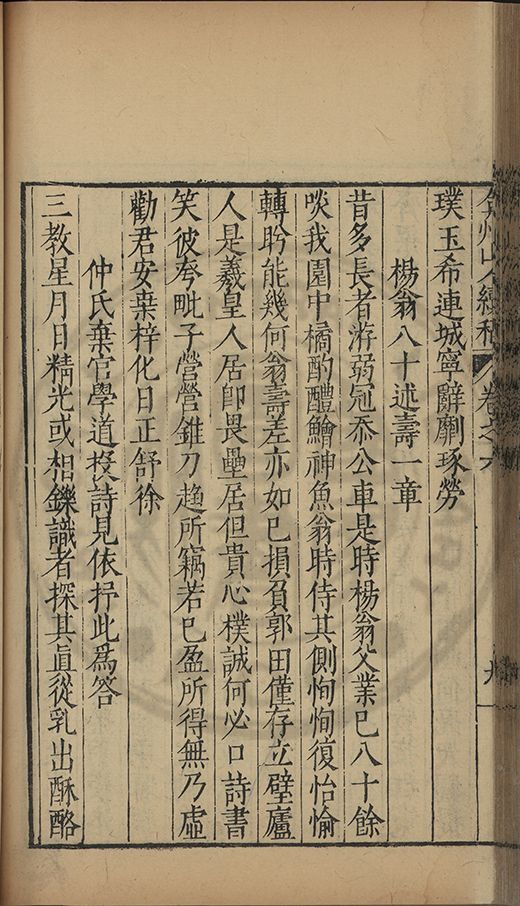 弇州山人續稿 卷之六 九
璞玉希連城寧辭劘琢勞
楊翁八十述壽一章
昔多長者游弱冠忝公車是時楊翁父業已八十餘
啖我園中橘酌醴鱠神魚翁時侍其側恂恂復怡愉
轉盻能幾何翁壽差亦如已損負郭田僅存立壁廬
人是羲皇人居卽畏壘居但貴心樸誠何必口詩書
笑彼夸毗子營營錐刀趨所竊若已盈所得無乃虛
勸君安桒梓化日正舒徐
仲氏棄官學道投詩見依抒此爲答
三教星月日精光或相鑠識者探其眞從乳出酥酪